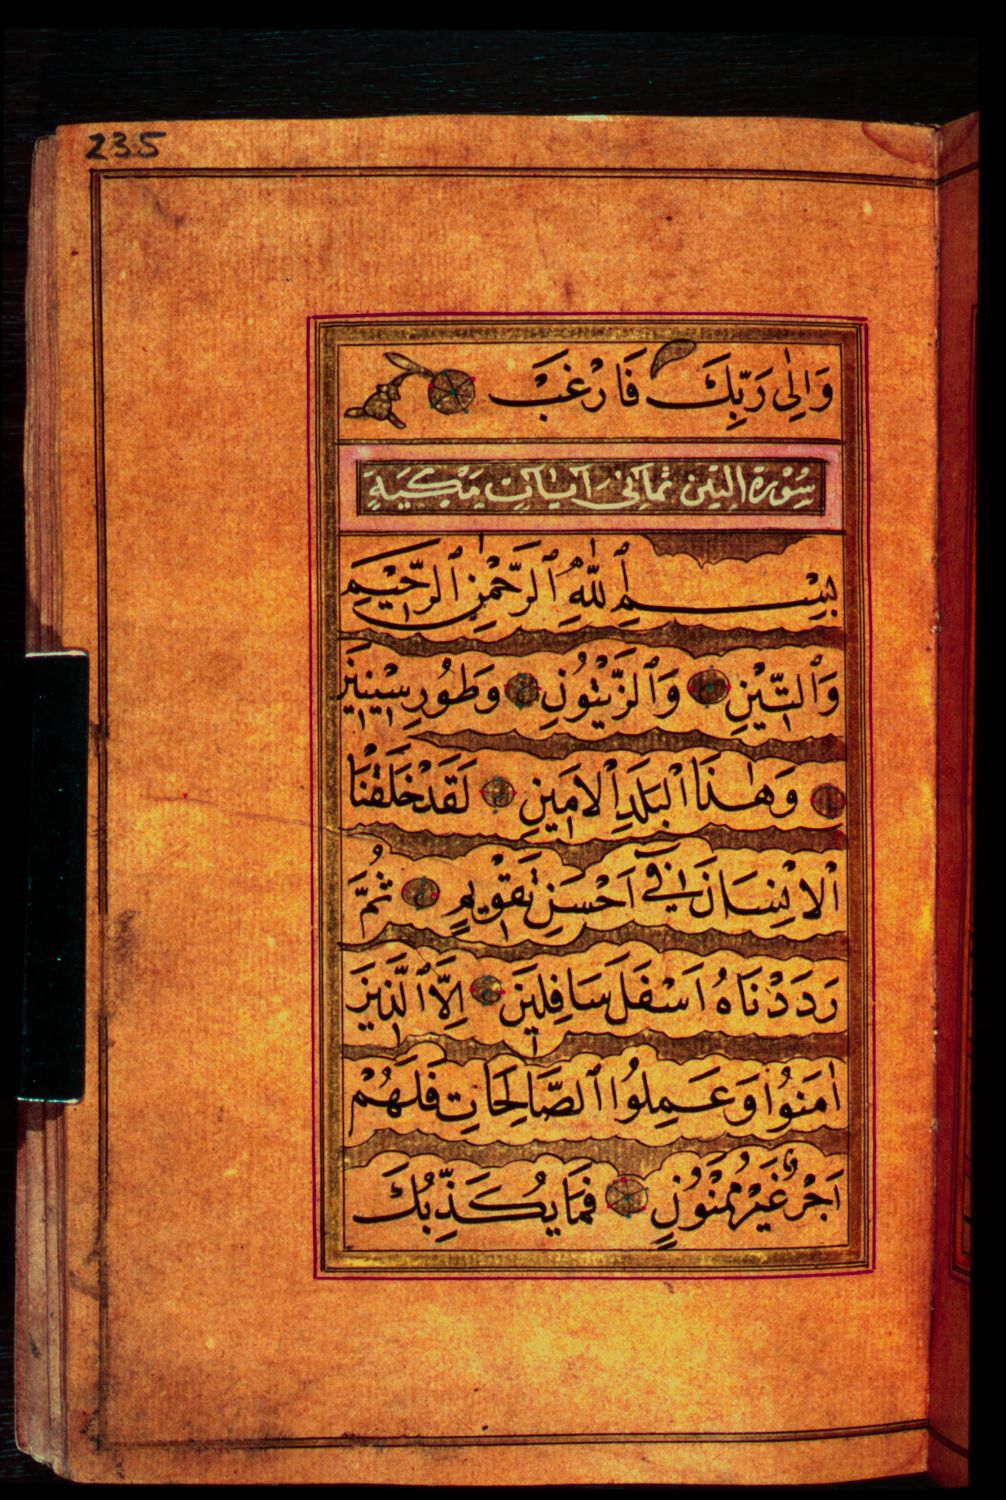 235
وَاِلٰى رَبِّكَ فَارْغَبْ
سُوْرَةُ التِّيْنِ ثَمَانِىَ اٰيَاتٍ مَكِّيَةٍ
بِسْمِ ٱللّٰهِ ٱلرَّحْمٰنِ ٱلرَّحِيْمِ
وَٱلتِّيْنِ وَٱلزَّيْتُوْنِ وَطُوْرِ سِيْنِيْنَ
وَهٰذَا الْبَلَدِ الْاَمِيْنِ لَقَدْ خَلَقْنَا
الْاِنْسَانَ فِيْ اَحْسَنِ تَقْوِيْمٍ ثُمَّ
رَدَدْنَاهُ اَسْفَلَ سَافِلِيْنَ اِلَّا ٱلَّذِيْنَ
اٰمَنُوْا وَعَمِلُوا ٱلصَّالِحَاتِ فَلَهُمْ
اَجْرٌ غَيْرُ مَمْنُوْنٍ فَمَا يُكَذِّبُكَ